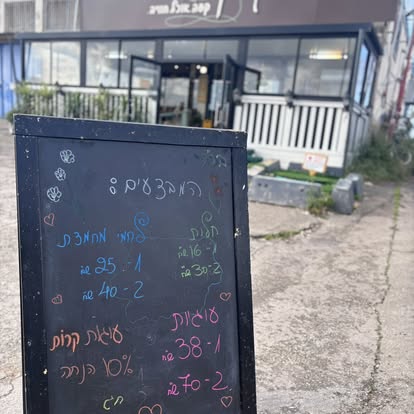 קפה אוכל אווירה
המבצעים:
חלות
1- 16 ש"ח
2- 30 ש"ח
לחמי מחמצת
1- 25 ש"ח
2- 40 ש"ח
עוגיות
1- 38 ש"ח
2- 70 ש"ח
עוגות קרות
10% הנחה